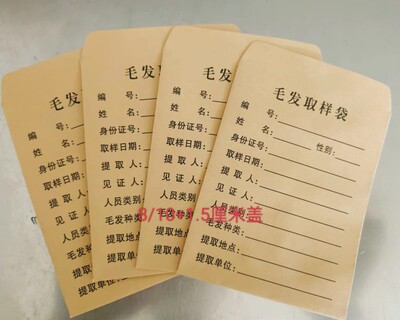 毛
编 号:
姓 名:
身份证号:
取样日期:
提 取 人:
见 证 人:
人员类别:
毛发种类:
提取地点:
提取单位:
毛发取
编 号:
姓 名:
身份证号:
取样日期:
提 取 人:
见 证 人:
人员类别:
毛发种类:
提取地点:
提取单位:
毛发取
编 号:
姓 名:
身份证号:
取样日期:
提 取 人:
见 证 人:
人员类别:
毛发种类:
提取地点:
提取单位:
毛发取样袋
编 号:
姓 名:
身份证号: 性别:
取样日期:
提 取 人:
见 证 人:
人员类别:
毛发种类:
提取地点:
提取单位:
厘米盖